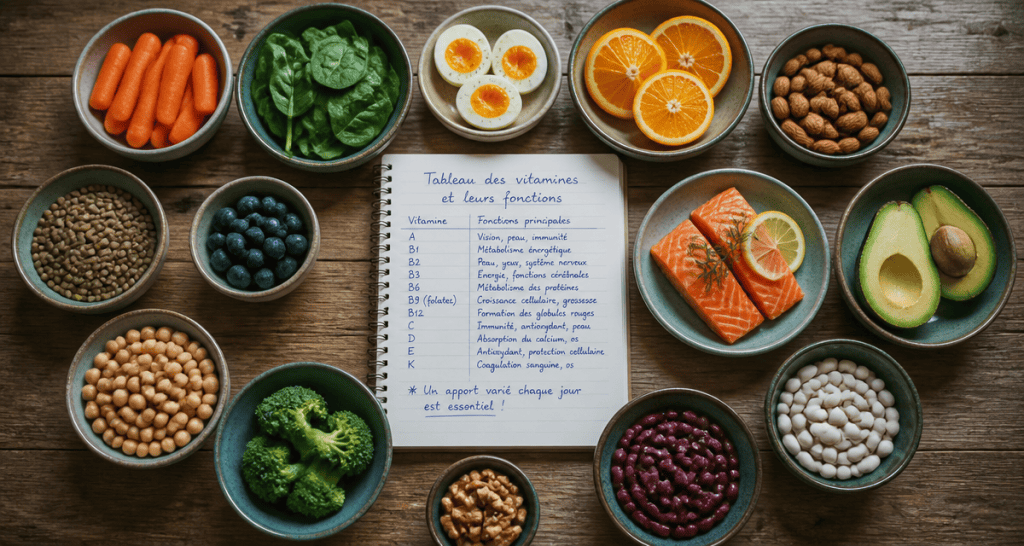 Tableau des vitamines
et leurs fonctions
Vitamine Fonctions principales
A Vision, peau, immunité
B1 Métabolisme énergétique
B2 Peau, yeux, système nerveux
B3 Énergie, fonctions cérébrales
B6 Métabolisme des protéines
B9 (folates) Croissance cellulaire, grossesse
B12 Formation des globules rouges
C Immunité, antioxydant, peau
D Absorption du calcium, os
E Antioxydant, protection cellulaire
K Coagulation sanguine, os
* Un apport varié chaque jour
est essentiel !